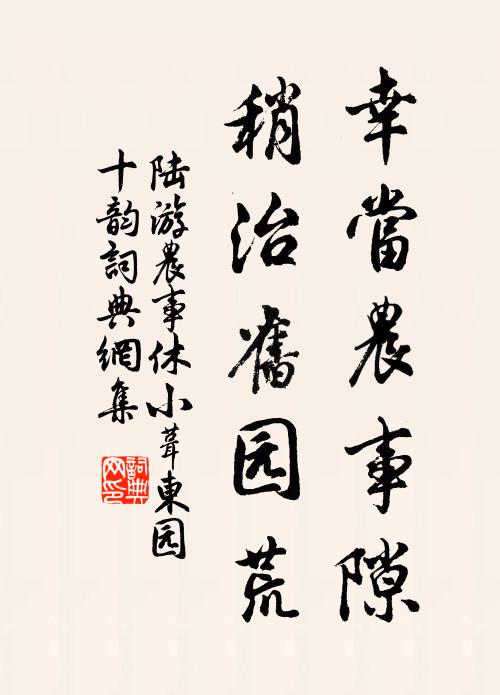 幸當農事隙
稍治舊园荒
陆游農事休小葺東园
十韵詞典網集
詞典
网印